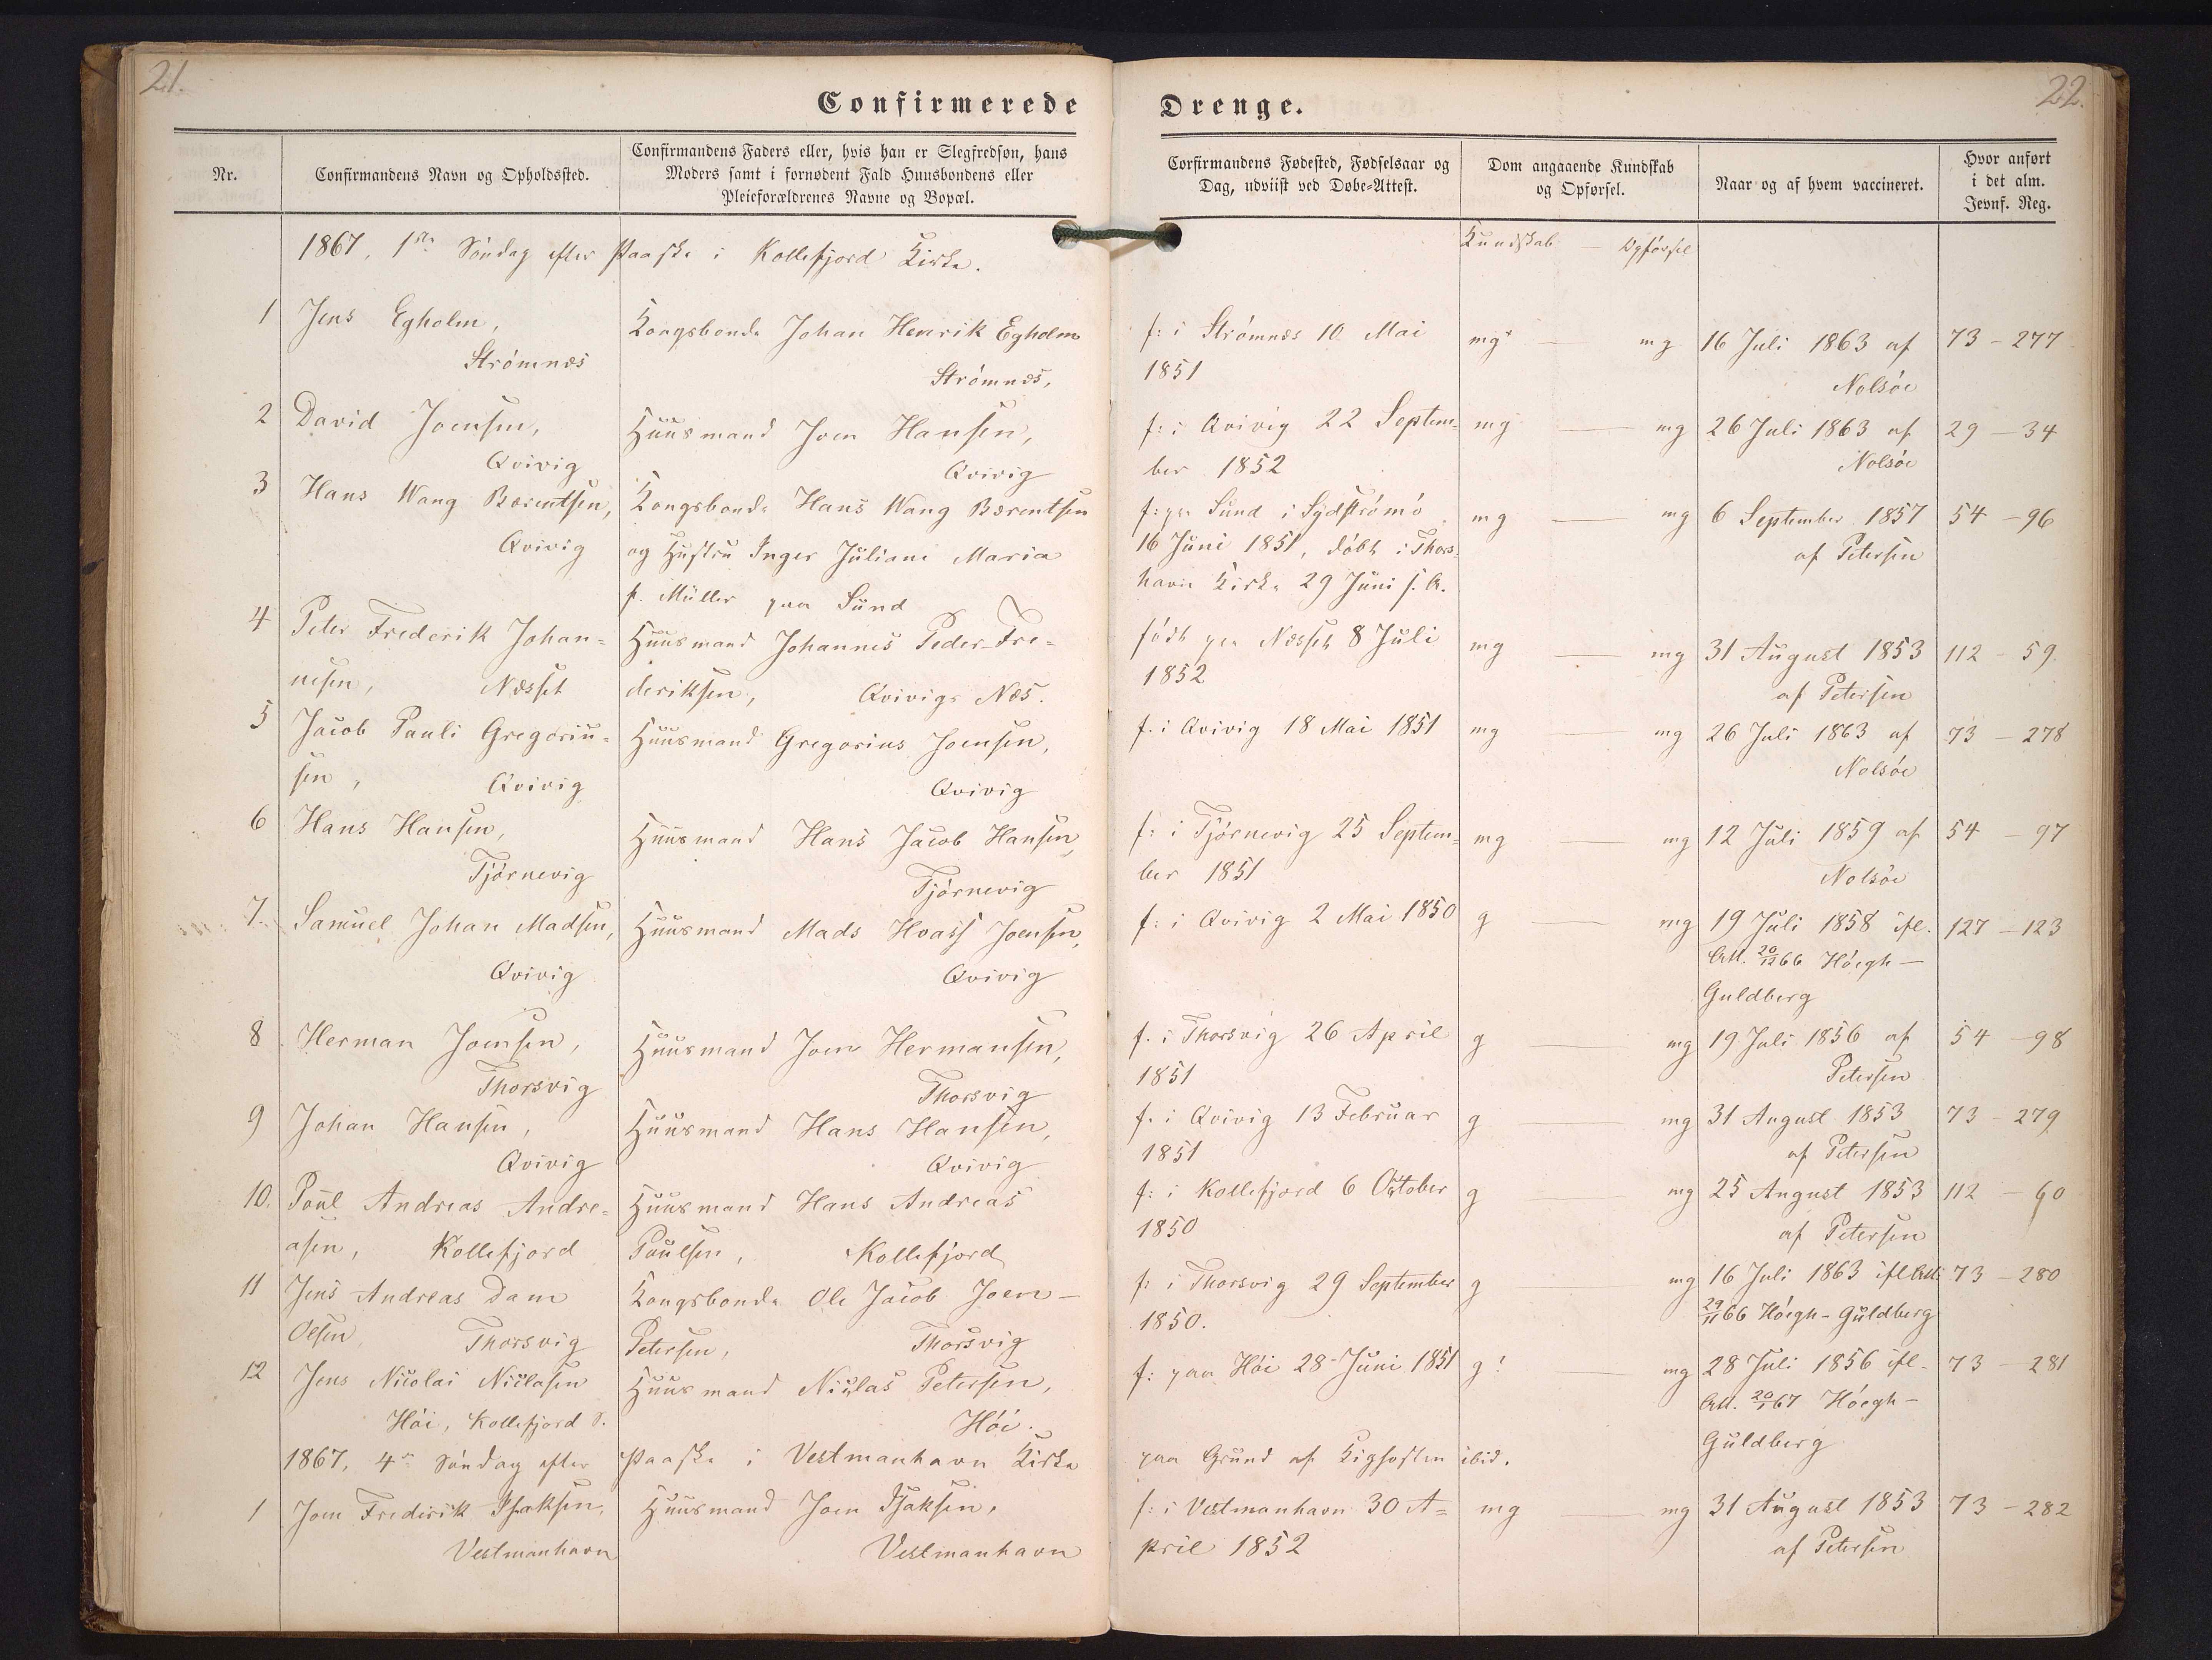 21.
22.
Confirmerede Drenge.
Nr.
Confirmandens Navn og Opholdssted.
Confirmandens Faders eller, hvis han er Slegfredsøn, hans
Moders samt i fornødent Fald Huusbondens eller
Pleieforældrenes Navne og Bopæl.
Corfirmandens Fødested, Fødselsaar og
Dag, udviist ved Døbe-Attest.
Dom angaaende Kundskab
og Opførsel.
Naar og af hvem vaccineret.
Hvor anført
i det alm.
Jevnf. Reg.
1867, 1ste Søndag efter Paaske i Kollefjord Kirke.
Kundskab — Opførsel
1 Jens Egholm, Kongsbonde Johan Henrik Egholm f: i Strömnæs 10 Mai mg — mg 16 Juli 1863 af 73 - 277
Strömnæs Strömnæs, 1851 Nolsöe
2 David Joensen, Huusmand Joen Hansen, f: i Qvivig 22 Septem- mg — mg 26 Juli 1863 af 29 - 34
Qvivig Qvivig ber 1852 Nolsöe
3 Hans Wang Bærentsen, Kongsbonde Hans Wang Bærentsen f: paa Sund i Sydströmö mg — mg 6 September 1857 54 - 96
Qvivig og Hustru Inger Juliane Maria 16 Juni 1851, döbt i Thors- af Petersen
f. Müller paa Sund havn Kirke 29 Juni s. A.
4 Peter Frederik Johan- Huusmand Johannes Peder Fre- födt paa Næsset 8 Juli mg — mg 31 August 1853 112 - 59
nesen, Næsset deriksen, Qvivigs Næs. 1852 af Petersen
5 Jacob Pauli Gregoriu- Huusmand Gregorius Joensen, f. i Qvivig 18 Mai 1851 mg — mg 26 Juli 1863 af 73 - 278
sen, Qvivig Qvivig Nolsöe
6 Hans Hansen, Huusmand Hans Jacob Hansen, f: i Tjörnevig 25 Septem- mg — mg 12 Juli 1859 af 54 - 97
Tjörnevig Tjörnevig ber 1851 Nolsöe
7 Samuel Johan Madsen, Huusmand Mads Hvass Joensen, f: i Qvivig 2 Mai 1850 g — mg 19 Juli 1858 ifl. 127 - 123
Qvivig Qvivig Att. 20/12 66 Höegh-
Guldberg
8 Herman Joensen, Huusmand Joen Hermansen, f. i Thorsvig 26 April g — mg 19 Juli 1856 af 54 - 98
Thorsvig Thorsvig 1851 Petersen
9 Johan Hansen, Huusmand Hans Hansen, f. i Qvivig 13 Februar g — mg 31 August 1853 73 - 279
Qvivig Qvivig 1851 af Petersen
10. Poul Andreas Andre- Huusmand Hans Andreas f: i Kollefjord 6 October g — mg 25 August 1853 112 - 60
asen, Kollefjord Poulsen, Kollefjord 1850 af Petersen
11 Jens Andreas Dam Kongsbonde Ole Jacob Joen- f: i Thorsvig 29 September g — mg 16 Juli 1863 ifl Att: 73 - 280
Olsen, Thorsvig Petersen, Thorsvig 1850. 29/11 66 Höegh-Guldberg
12 Jens Nicolai Niclasen Huusmand Niclas Petersen, f: paa Höi 28 Juni 1851 g! — mg 28 Juli 1856 ifl. 73 - 281
Höi, Kollefjord S. Höi. Att. 20/1 67 Höegh-
Guldberg
1867, 4de Søndag efter Paaske i Vestmanhavn Kirke paa Grund af Kighosten ibid.
1 Joen Frederik Isaksen, Huusmand Joen Isaksen, f: i Vestmanhavn 30 A- mg — mg 31 August 1853 73 - 282
Vestmanhavn Vestmanhavn pril 1852 af Petersen